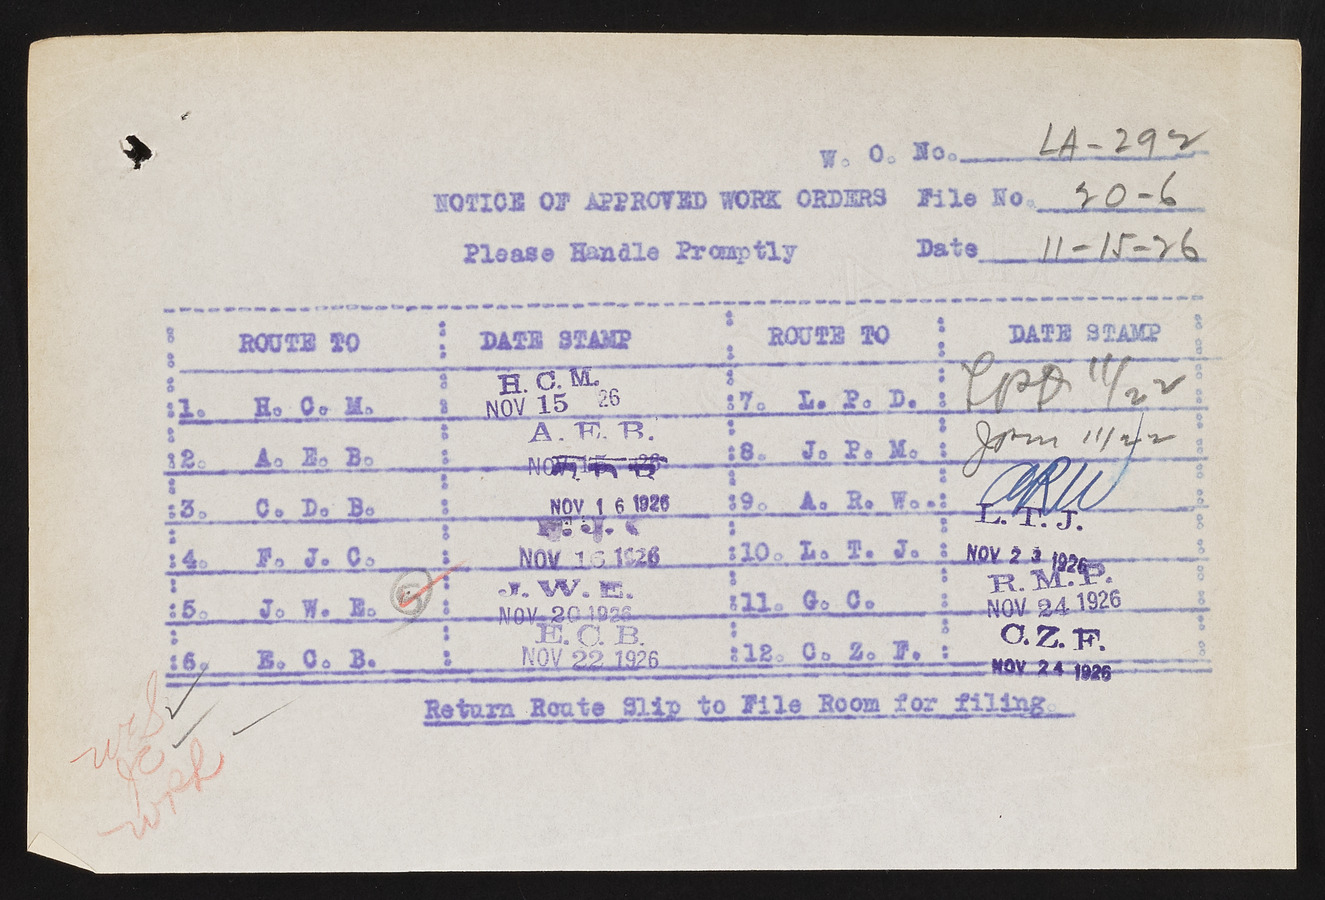 W. O. No. LA-292
NOTICE OF APPROVED WORK ORDERS File No. 20-6
Please Handle Promptly Date 11-15-26
ROUTE TO DATE STAMP ROUTE TO DATE STAMP
H. C. M.
1. H. C. M. NOV 15 26 7. L. P. D. LPD 11/22
A. E. B.
2. A. E. B. NOV 15 26 8. J. P. M. JPM 11/22
3. C. D. B. NOV 16 1926 9. A. R. W. ARW
F. J. C L. T. J.
4. F. J. C. NOV 16 1926 10. L. T. J. NOV 23 1926
J. W. E. R. M. P.
5. J. W. E. 5 NOV 20 1926 11. G. C. NOV 24 1926
E. C. B. C. Z. F.
6. E. C. B. NOV 22 1926 12. C. Z. F. NOV 24 1926
Return Route Slip to File Room for filing.